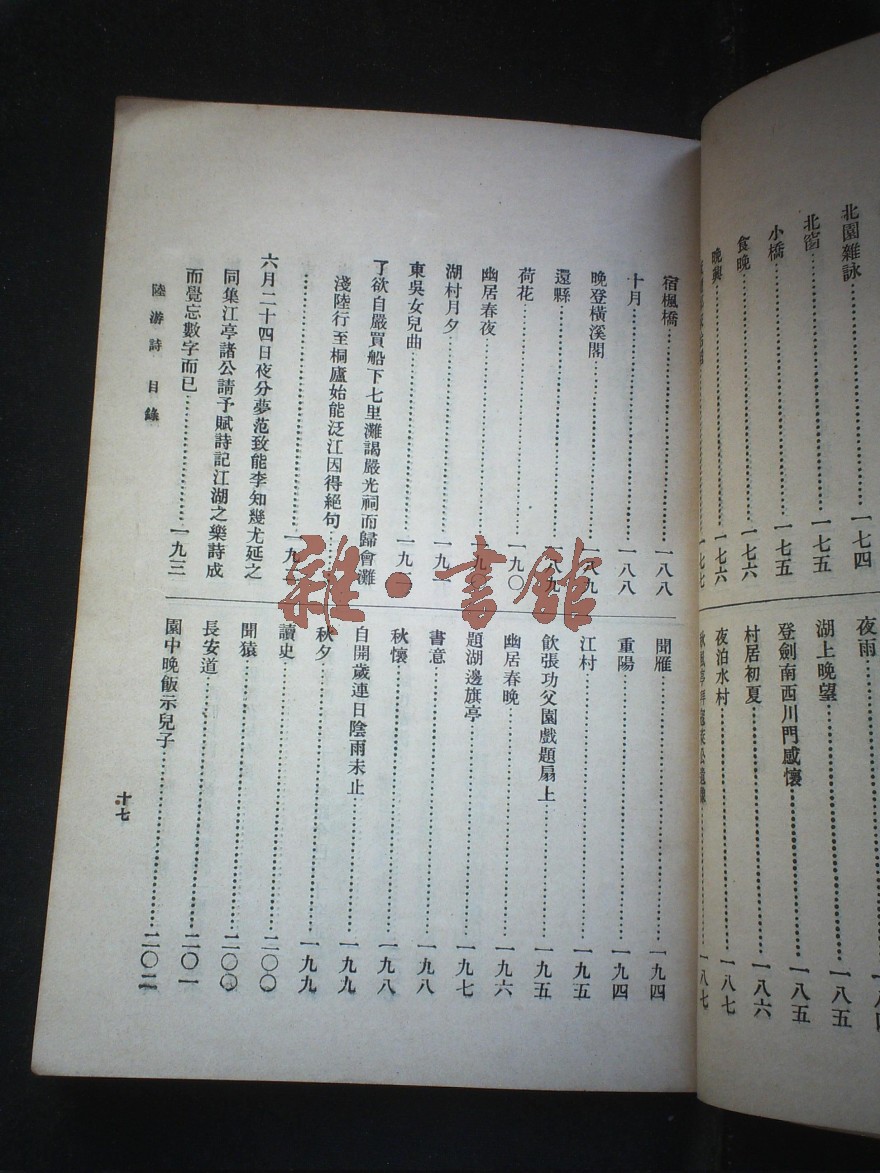 北園雜詠……一七四
北窗……一七五
小橋……一七五
食晚……一七六
晚興……一七六
一七七
夜雨
湖上晚望……一八五
登劍南西川門感懷……一八五
村居初夏……一八六
夜泊水村……一八七
秋風亭拜寇萊公遺像……一八七
宿楓橋……一八八
十月……一八八
晚登橫溪閣……一八九
還縣……一八九
荷花……一九〇
幽居春夜……一九〇
湖村月夕……一九一
東吳女兒曲……一九一
了欲自嚴買船下七里灘謁嚴光祠而歸會灘
淺陸行至桐廬始能泛江因得絕句……
……一九
六月二十四日夜分夢范致能李知幾尤延之
同集江亭諸公請予賦詩記江湖之樂詩成
而覺忘數字而已……一九三
聞雁……一九四
重陽……一九四
江村……一九五
飲張功父園戲題扇上……一九五
幽居春晚……一九六
題湖邊旗亭……一九七
書意……一九八
秋懷……一九八
自開歲連日陰雨未止……一九九
秋夕……一九九
讀史……二〇〇
聞猿……二〇〇
長安道……二〇一
園中晚飯示兒子……二〇二
陸游詩 目錄
十七
雜·書館